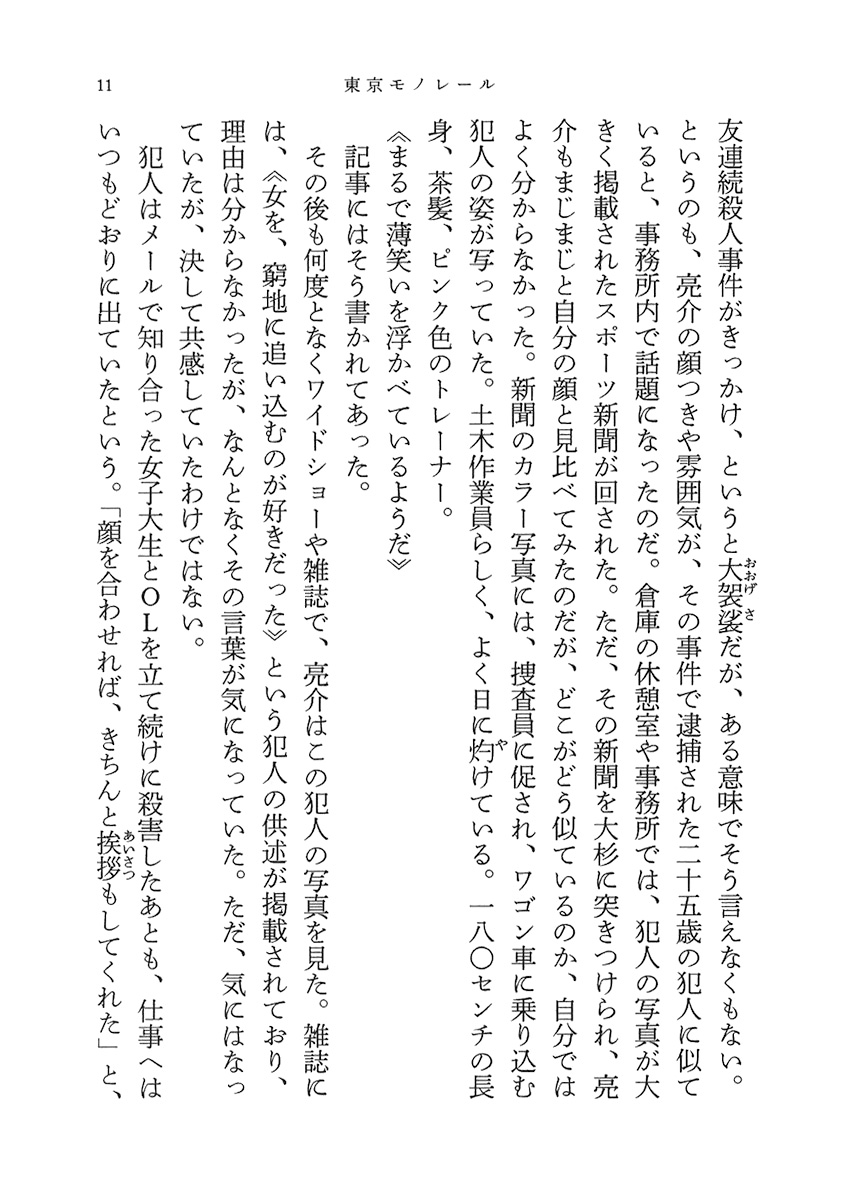 東京モノレール
11
友連続殺人事件がきっかけ、というと大袈裟だが、ある意味でそう言えなくもない。
というのも、亮介の顔つきや雰囲気が、その事件で逮捕された二十五歳の犯人に似て
いると、事務所内で話題になったのだ。倉庫の休憩室や事務所では、犯人の写真が大
きく掲載されたスポーツ新聞が回された。ただ、その新聞を大杉に突きつけられ、亮
介もまじまじと自分の顔と見比べてみたのだが、どこがどう似ているのか、自分では
よく分からなかった。新聞のカラー写真には、捜査員に促され、ワゴン車に乗り込む
犯人の姿が写っていた。土木作業員らしく、よく日に灼けている。一八〇センチの長
身、茶髪、ピンク色のトレーナー。
《まるで薄笑いを浮かべているようだ》
記事にはそう書かれてあった。
その後も何度となくワイドショーや雑誌で、亮介はこの犯人の写真を見た。雑誌に
は、《女を、窮地に追い込むのが好きだった》という犯人の供述が掲載されており、
理由は分からなかったが、なんとなくその言葉が気になっていた。ただ、気にはなっ
ていたが、決して共感していたわけではない。
犯人はメールで知り合った女子大生とOLを立て続けに殺害したあとも、仕事へは
いつもどおりに出ていたという。「顔を合わせれば、きちんと挨拶もしてくれた」と、
おおげさ
や
あいさつ